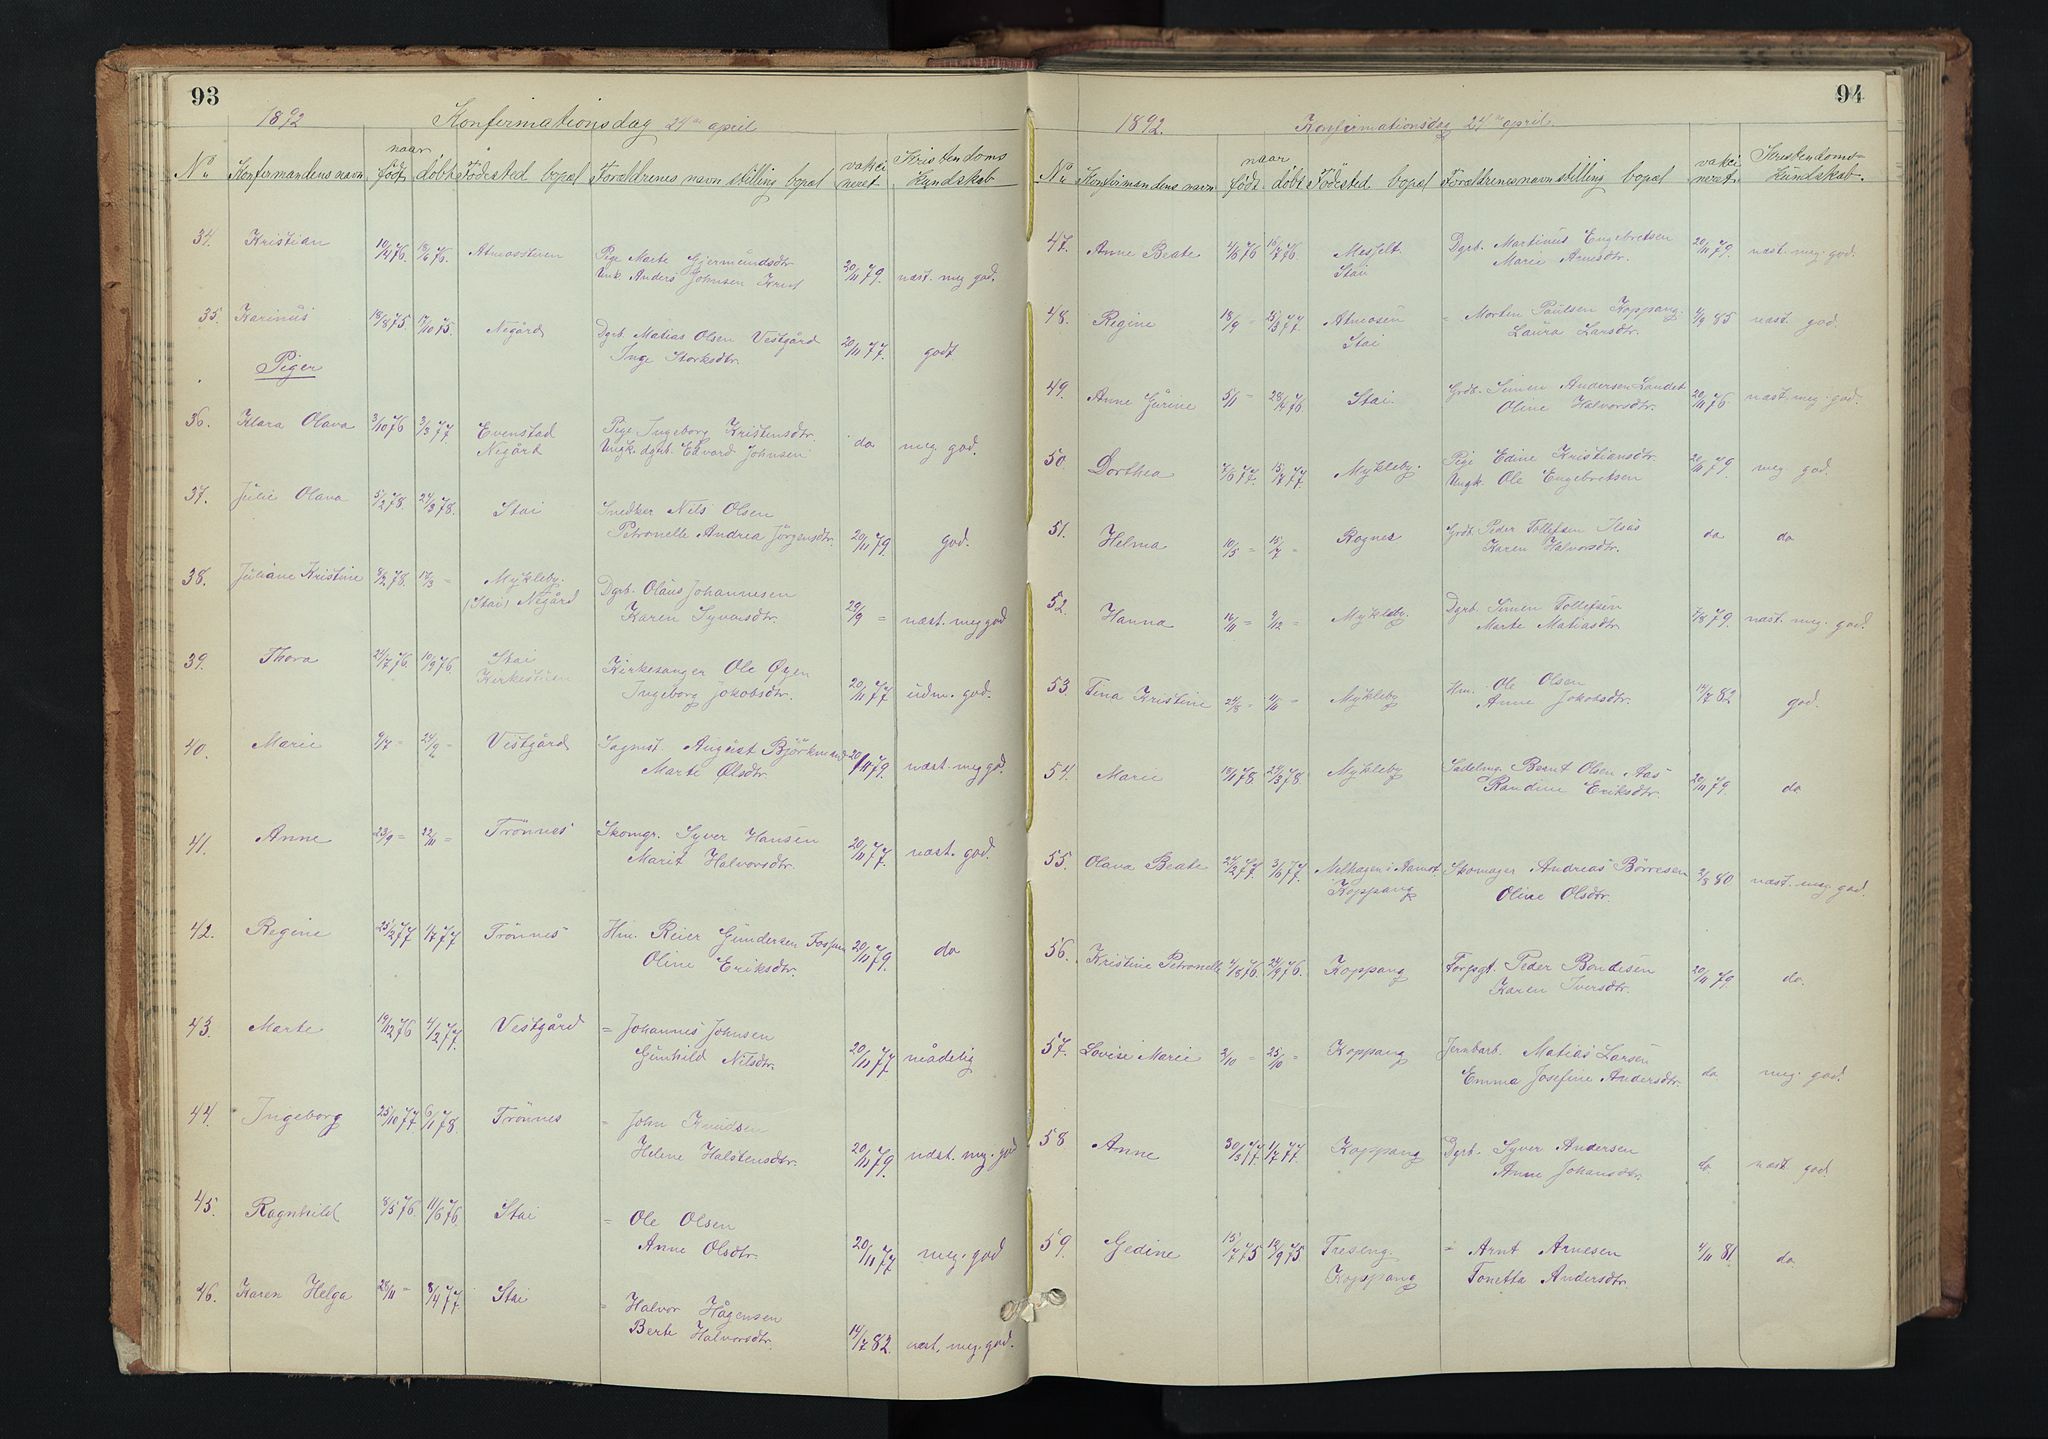 93
1892 Konfirmationsdag 24de april
naar
No Konfirmandens navn født døbt Fødested bopæl Forældrenes navn stilling bopæl vakcineret Kristendoms Kundskab
34. Kristian 76. 18/6 76. Pige Marte Gjermundsdtr. 20/11 79. næst. meg god.
Unk. Anders Johnsen
35. Karinus 18/8 75. 17/10 75. Negård Dgrb. Matias Olsen Vestgård 20/11 77. godt
Inge Storksdtr.
Piger
36. Klara Olava 3/10 76 2/3 77 Evenstad Pige Ingeborg Kristensdtr. do meg. god.
Negård Ungk. dgrb. Edvard Johnsen
37. Julie Olava 5/2 78. 24/3 78. Stai Snedker Nils Olsen
Petronelle Andrea Jörgensdtr. 20/11 79 god.
38. Juliane Kristine 8/2 78. 17/3 = Mykleby. Dgrb. Olaus Johannesen
(Stai) Negård Karen Syversdtr. 29/9 = næst. meg god
39. Thora 21/7 76. 10/9 76. Stai Kirkesanger Ole Øyen
Kirkestuen Ingeborg Jakobsdtr. 20/11 77 udm. god.
40. Marie 9/7 = 24/9 = Vestgård Sagmst. August Björkmand 20/11 79. næst. meg god.
Marte Olsdtr.
41. Anne 23/9 = 22/11 = Trönnes Skomgr. Syver Hansen 20/11 77. næst. god.
Marit Halvorsdtr.
42. Regine 25/2 77 1/7 77 Trönnes Hm. Reier Gundersen 20/11 79. do
Oline Eriksdtr.
43. Marte 19/12 76 4/2 77. Vestgård = Johannes Johnsen
Gunhild Nilsdtr. 20/11 77 mådelig
44. Ingeborg 25/10 77 6/1 78. Trönnes = John Knudsen
Helene Halstensdtr. 20/11 79. næst. meg. god
45. Ragnhild 8/5 76. 11/6 76. Stai = Ole Olsen
Anne Olsdtr. 20/11 77 meg. god
46. Karen Helga 28/11 = 8/4 77. Stai = Halvor Hågensen
Berte Halvorsdtr. 14/7 82. næst. meg. god.
94
1892. Konfirmationsdag 24de april.
naar
No Konfirmandens navn født døbt Fødested bopæl Forældrenes navn stilling bopæl vakcineret Kristendoms= Kundskab.
47. Anne Beate 4/6 76 16/7 76. Messelt. Dgrb. Martinus Engebretsen 20/11 79. næst. meg. god.
Stai Marie Arnesdtr.
48. Regine 18/9 = 25/3 77. Atmosen = Morten Paulsen Koppang. 4/9 85 næst god.
Stai Laura Larsdtr.
49. Anne Gurine 5/11 = Stai Grdb. Simen Andersen Landet 20/11 76. næst meg. god.
Oline Halvorsdtr.
50. Dorthea 7/6 77. 15/7 77. Mykleby. Pige Edine Kristiansdtr. 20/11 79. meg god.
Ungk. Ole Engebretsen
51. Helma 10/5 = 15/7 = Rognes Grdb. Peder Tollefsen Ilsås do do
Karen Halvorsdtr.
52. Hanna 16/11 = 9/12 = Mykleby. Dgrb. Simen Tollefsen 7/8 79. næst. meg. god.
Marte Matiasdtr.
53. Tina Kristine 24/8 = 11/11 = Mykleby Hm. Ole Olsen 14/7 82 god.
Anne Jakobsdtr.
54. Marie 78. 24/3 78 Mykleby Sadelmg. Bernt Olsen Aas 20/11 79. do
Randine Eriksdtr.
55. Olava Beate 24/2 77. 3/6 77. Melhagen i Aamot Skomager Andreas Börresen 2/8 80 næst. meg. god.
Koppang Oline Olsdtr.
56. Kristine Petronelle 4/8 76. 24/9 76. Koppang Forpgt. Peder Bondesen 20/11 79 do.
Karen Iversdtr.
57. Lovise Marie 2/10 = 25/10 = Koppang Jernbarb. Matias Larsen
Emma Josefine Andersdtr. do meg. god.
58 Anne 30/3 77 1/7 77. Koppang Dgrb. Syver Andersen
Anne Johansdtr. do næst god.
59. Gedine 15/7 75 12/9 75. Treseng. = Arnt Arnesen 4/11 81 do
Koppang Tonetta Andersdtr.